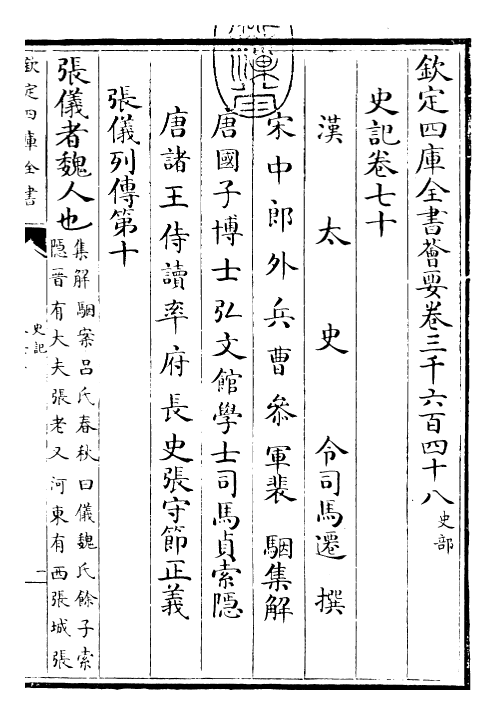 欽定四庫全書薈要卷三千六百四十八 史部
史記卷七十
漢太史令司馬遷撰
宋中郎外兵曹參軍裴駰集解
唐國子博士弘文館學士司馬貞索隱
唐諸王侍讀率府長史張守節正義
張儀列傳第十
張儀者魏人也
集解駰案呂氏春秋曰儀魏氏餘子索
隱晉有大夫張老又河東有西張城張
欽定四庫全書
史記
一